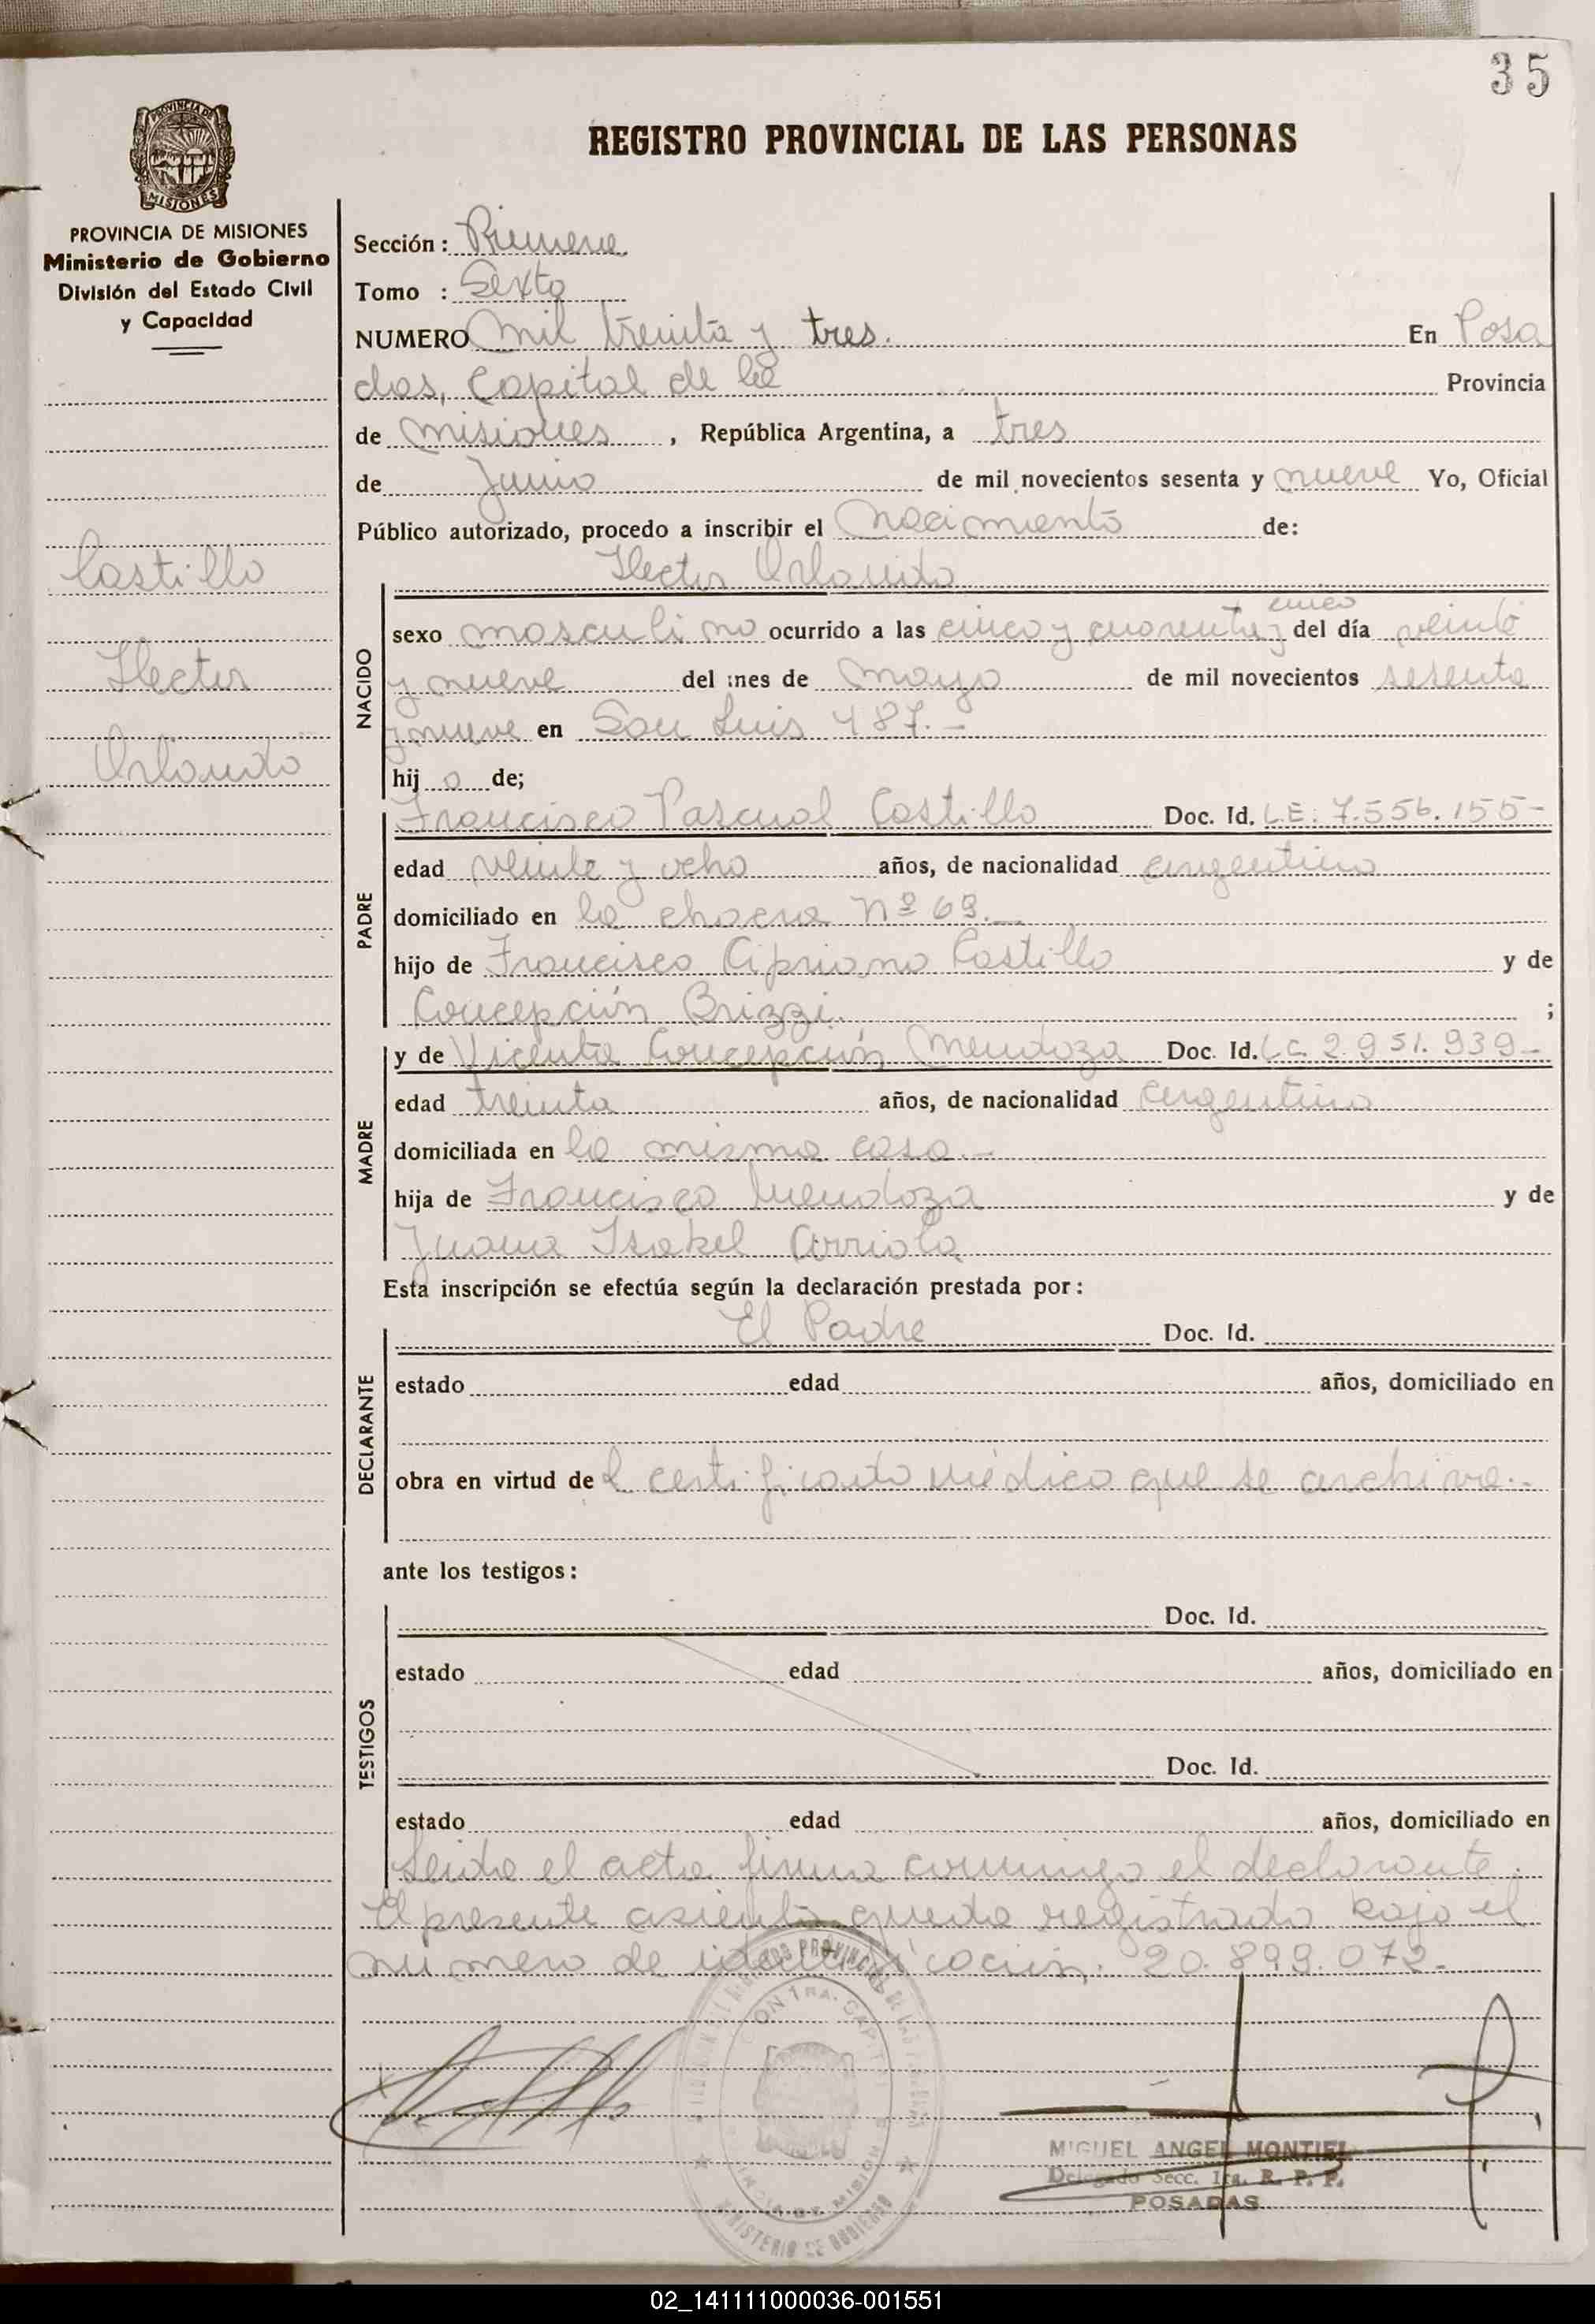 35
REGISTRO PROVINCIAL DE LAS PERSONAS
PROVINCIA DE MISIONES
PROVINCIA DE MISIONES
Ministerio de Gobierno
División del Estado Civil
y Capacidad
Castillo
Hector
Orlando
Sección: Primera
Tomo : Sexto
NUMERO mil treinta y tres. En Posa
das, Capital de la Provincia
de misiones, República Argentina, a tres
de Junio de mil novecientos sesenta y nueve Yo, Oficial
Público autorizado, procedo a inscribir el nacimiento de:
Hector Orlando
NACIDO
cinco
sexo masculino ocurrido a las cinco y cuarenta y del día veinte
y nueve del mes de mayo de mil novecientos sesenta
y nueve en San Luis 487.-
hijo de;
PADRE
Francisco Pascual Castillo Doc. Id. L.E. 7.556.155-
edad veinte y ocho años, de nacionalidad argentina
domiciliado en la chacra Nº 69.-
hijo de Francisco Cipriano Castillo y de
Concepción Brizzi. ;
MADRE
y de Vicenta Concepción Mendoza Doc. Id. L.C. 2.951.939-
edad treinta años, de nacionalidad argentina
domiciliada en la misma casa.-
hija de Francisco Mendoza y de
Juana Isabel Arriola
Esta inscripción se efectúa según la declaración prestada por:
DECLARANTE
El Padre Doc. Id.
estado edad años, domiciliado en
obra en virtud del certificado médico que se archiva.-
ante los testigos:
TESTIGOS
Doc. Id.
estado edad años, domiciliado en
Doc. Id.
estado edad años, domiciliado en
Leida el acta firma conmigo el declarante.
El presente asiento queda registrado bajo el
numero de identificación: 20.899.072.-
MINISTERIO DE GOBIERNO
MIGUEL ANGEL MONTIEL
Delegado Secc. 1ra. R. P. P.
POSADAS
02_141111000036-001551